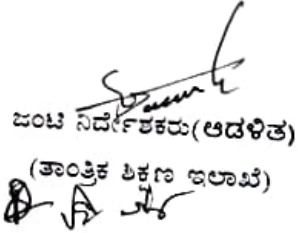 ಜಂಟಿ ನಿರ್ದೇಶಕರು(ಆಡಳಿತ)
(ತಾಂತ್ರಿಕ ಶಿಕ್ಷಣ ಇಲಾಖೆ)